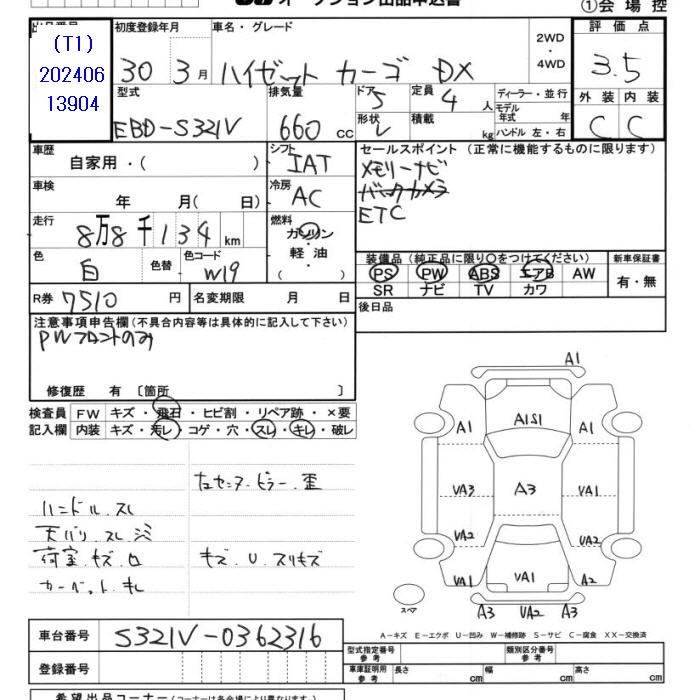 オークション出品申込書
①会場控
(T1)
202406
13904
初度登録年月
30 3月
車名・グレード
ハイゼット カーゴ DX
2WD
・
4WD
評価点
3.5
外装 内装
C C
型式
EBD-S321V
排気量
660 cc
ドア
5
形状
V
定員
4 人
積載
kg
ディーラー・並行
モデル年式 年
ハンドル 左・右
車歴
自家用・( )
シフト
IAT
セールスポイント (正常に機能するものに限ります)
メモリーナビ
バックカメラ
ETC
車検
年 月( 日)
冷房
AC
走行
8万8千134 km
燃料
ガソリン
・
軽油
( )
色
白
色替
色コード
W19
R券 7510 円
名変期限 月 日
装備品 (純正品に限り○をつけてください)
PS PW ABS エアB AW
SR ナビ TV カワ
新車保証書
有・無
後日品
注意事項申告欄(不具合内容等は具体的に記入して下さい)
PWフロントのみ
修復歴 有 〔箇所 〕
検査員
記入欄
FW キズ・飛石・ヒビ割・リペア跡・×要
内装 キズ・汚レ・コゲ・穴・スレ・キレ・破レ
ハンドル.スレ
天バリ.スレ.ジミ
荷室.キズ.凹
カーペット.キレ
左センター.ピラー.歪
キズ.U.スリキズ
A1
A1S1
A1 A1
VA3 A3 VA1
VA2 VA2
VA1 VA1 A2
スペア
A3 VA2 A3
A－キズ E－エクボ U－凹み W－補修跡 S－サビ C－腐食 XX－交換済
車台番号 S321V-0362316
登録番号
型式指定番号
参考
類別区分番号
参考
車庫証明用
参考
長さ cm 幅 cm 高さ cm
希望出品コーナー(コーナーは各会場により異なります)